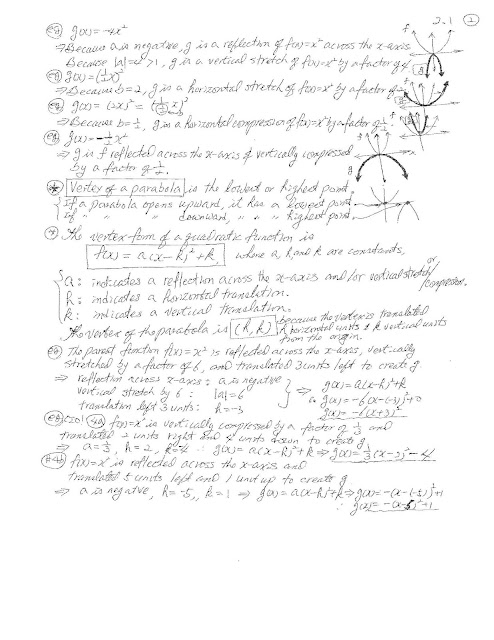 2.1 ②
(eg) g(x) = -4x²
⇒ Because a is negative, g is a reflection of f(x) = x² across the x-axis
Because |a| = 4 > 1, g is a vertical stretch of f(x) = x² by a factor of 4.
g(x) = (½x)²
⇒ Because b = 2, g is a horizontal stretch of f(x) = x² by a factor of 2
(eg) g(x) = (2x)² =
⇒ Because b = ½, g is a horizontal compression of f(x) = x² by a factor of ½
(eg) g(x) = -½x²
⇒ g is f reflected across the x-axis & vertically compressed
by a factor of ½.
Vertex of a parabola is the lowest or highest point
If a parabola opens upward, it has a lowest point.
If " " downward, " " " highest point.
The vertex-form of a quadratic function is
f(x) = a(x - h)² + k, where a, h, and k are constants,
a: indicates a reflection across the x-axis and/or vertical stretch or compression.
h: indicates a horizontal translation.
k: indicates a vertical translation.
The vertex of the parabola is (h, k) because the vertex is translated h horizontal units & k vertical units from the origin.
(eg) The parent function f(x) = x² is reflected across the x-axis, vertically
stretched by a factor of 6, and translated 3 units left to create g
⇒ reflection across x-axis : a is negative
vertical stretch by 6 : |a| = 6
translation left 3 units : h = -3
⇒ g(x) = a(x - h)² + k
∴ g(x) = -6(x - (-3))² + 0
g(x) = -6(x + 3)²
4a f(x) = x² is vertically compressed by a factor of ⅓ and
translated 2 units right and 4 units down to create g
⇒ a = ⅓, h = 2, k = -4 ∴ g(x) = a(x - h)² + k ⇒ g(x) = ⅓(x - 2)² - 4
#4b f(x) = x² is reflected across the x-axis and
translated 5 units left and 1 unit up to create g
⇒ a is negative, h = -5, k = 1 ⇒ g(x) = a(x - h)² + k ⇒ g(x) = -(x - (-5))² + 1